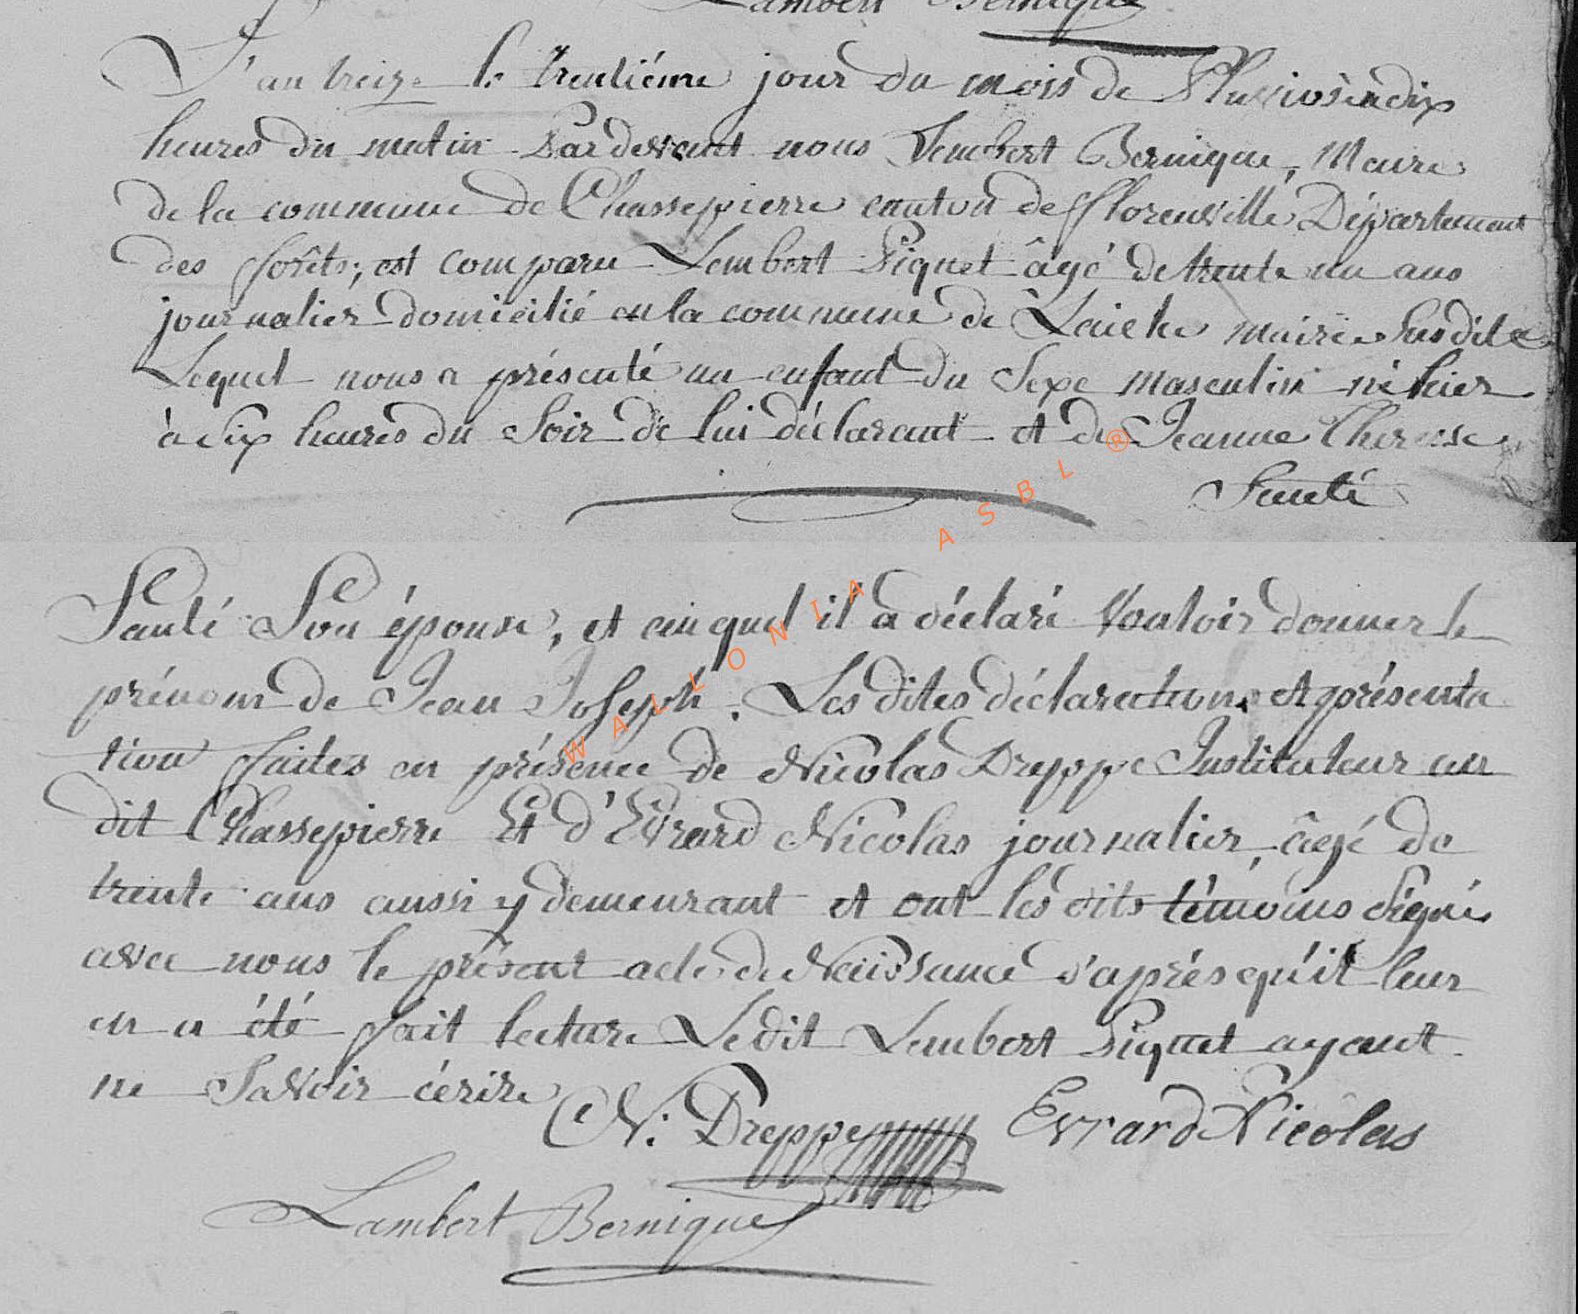 Lambert Bernique
L'an treize le trentiéme jour du mois de Pluviose à dix
heures du matin Pardevant nous Lambert Bernique, Maire
de la commune de Chassepierre canton de fflorenville Département
des fforêts; est comparu Lambert Piquet âgé de trente un ans
journalier domicilié en la commune de Laiche mairie susdite
Lequel nous a présenté un enfant du Sexe masculin né hier
à Six heures du Soir de lui déclarant et de Jeanne Therese
Santé
Santé Son épouse, et auquel il a déclaré Vouloir donner le
prénom de Jean Joseph. Les dites déclaration et présenta
tion ffaites en présence de Nicolas Dreppe Instituteur au
dit Chassepierre Et d'Evrard Nicolas journalier, âgé de
trente ans aussi y demeurant et ont les dits témoins Signés
avec nous le présent acte de Naissance d'après qu'il leur
en a été ffait lecture Ledit Lambert Piquet ayant
ne Savoir écrire
N. Dreppe Evrard Nicolas
Lambert Bernique
WALLONIA ASBL ®